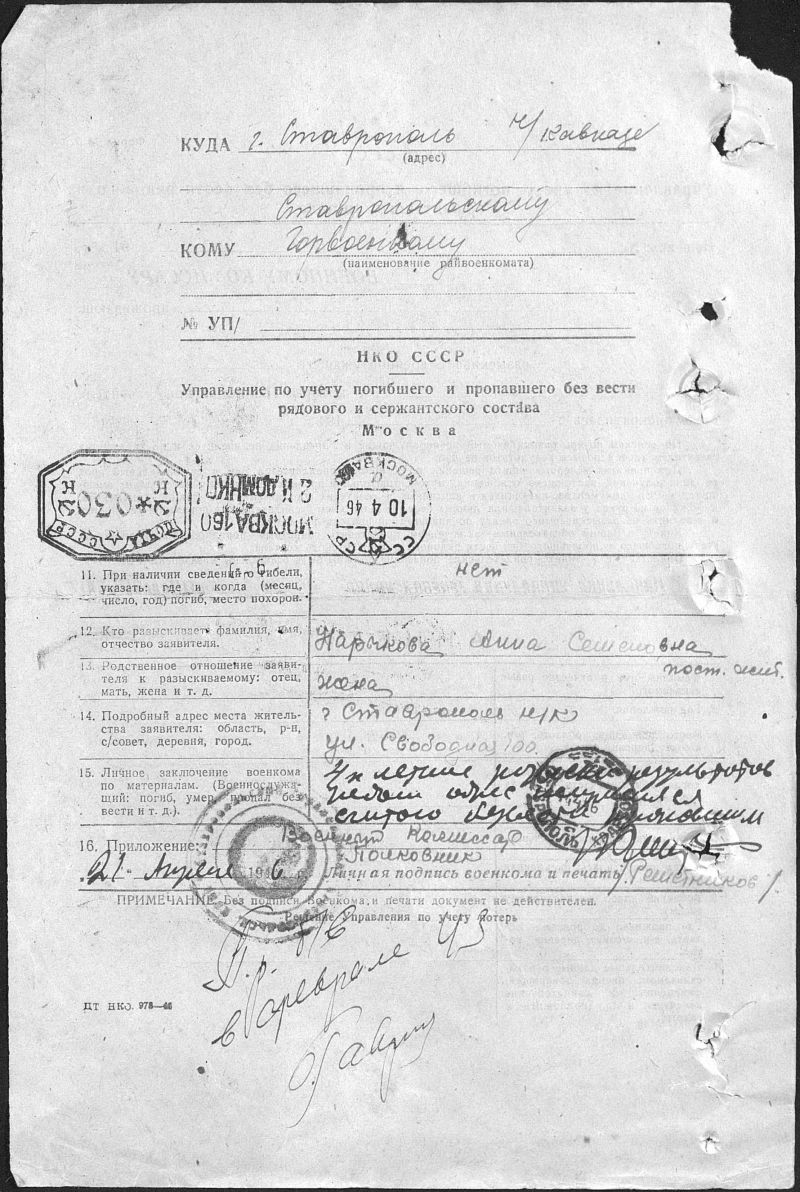 КУДА г. Ставрополь н/Кавказе
(адрес)
Ставропольскому
КОМУ Горвоенкому
(наименование райвоенкомата)
№ УП/
НКО СССР
Управление по учету погибшего и пропавшего без вести
рядового и сержантского состава
Москва
ПОЧТА СССР
К *030 К
МОСКВА 160
2 Й ДОМ НКО
МОСКВА
10 4 46
СССР
11. При наличии сведений о гибели,
указать: где и когда (месяц,
число, год) погиб, место похорон.
нет
12. Кто разыскивает фамилия, имя,
отчество заявителя.
Нарыкова Анна Семеновна
13. Родственное отношение заяви-
теля к разыскиваемому: отец,
мать, жена и т. д.
жена
14. Подробный адрес места житель-
ства заявителя: область, р-н,
с/совет, деревня, город.
пост. жит.
г Ставрополь н/К
ул. Свободная 100
15. Личное заключение военкома
по материалам. (Военнослужа-
щий: погиб, умер, пропал без
вести и т. д.).
4х летние розыски результатов
считаю без вести пропавшим
16. Приложение:
Военный Комиссар
Полковник
21 Апреля 1946 г. Личная подпись военкома и печать /Решетников/.
ПРИМЕЧАНИЕ. Без подписи военкома и печати документ не действителен.
Решение Управления по учету потерь
в феврале 43
ДТ НКО. 978—46